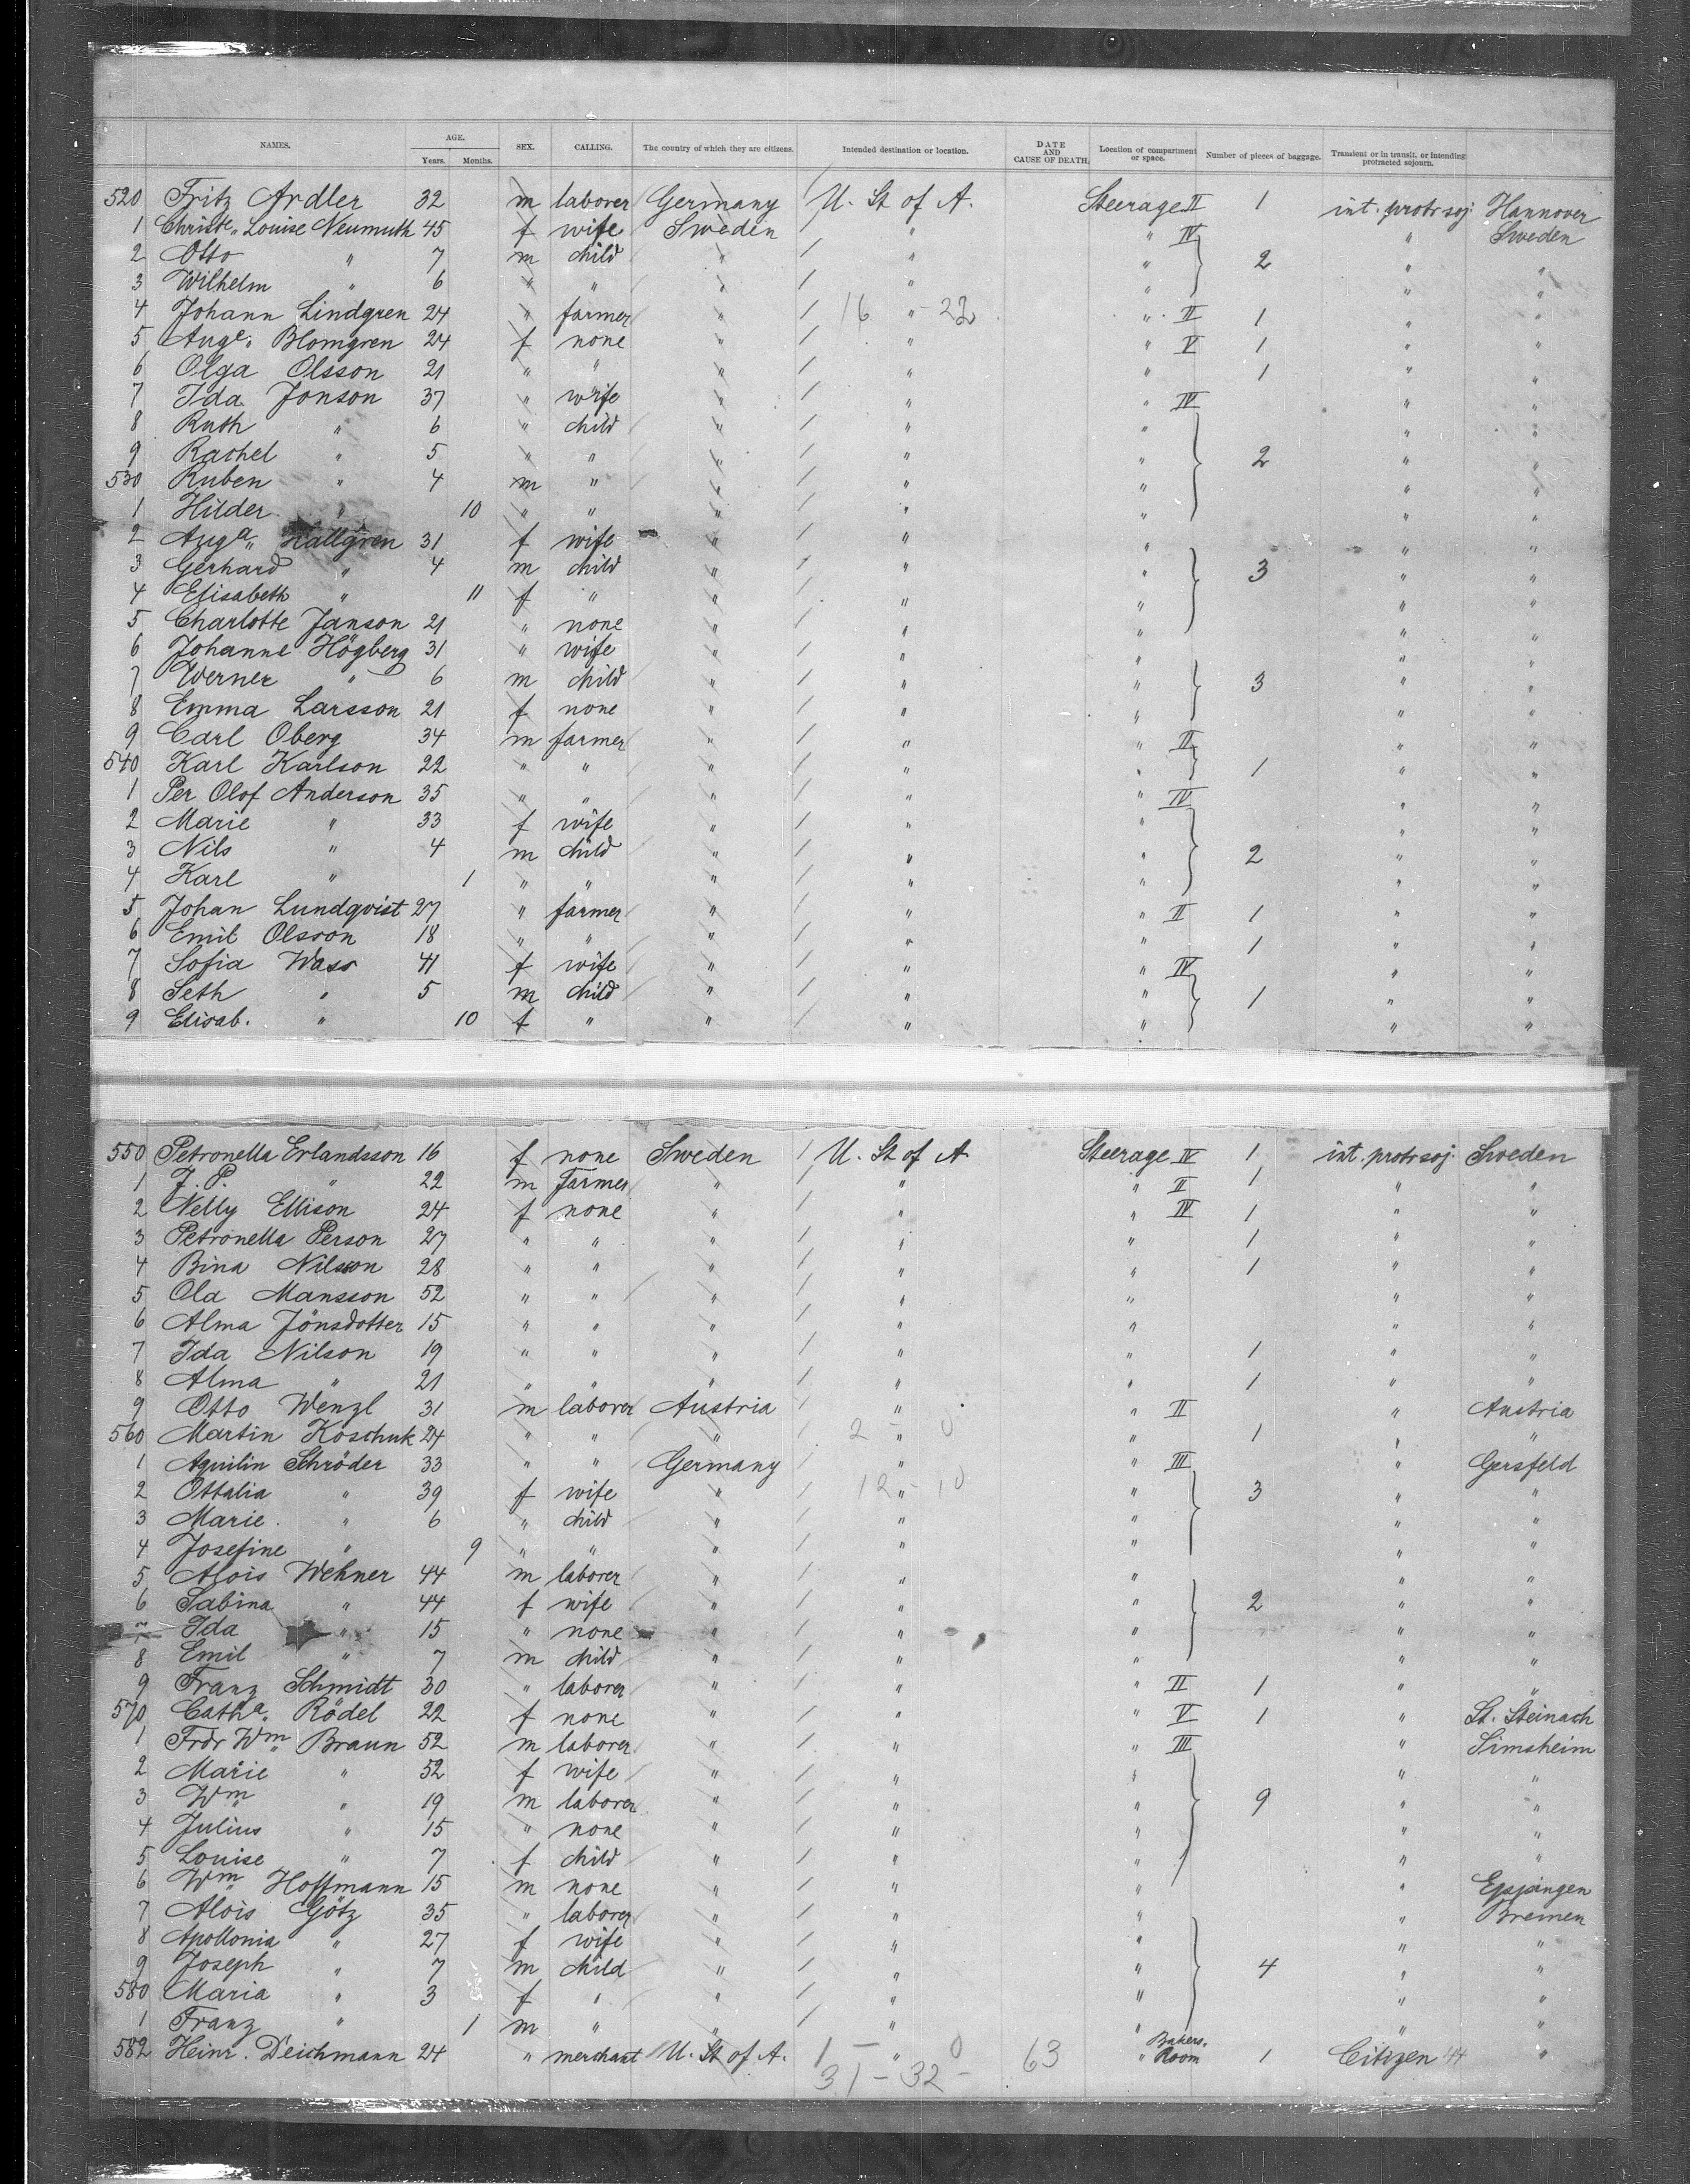 NAMES. AGE. Years. Months. SEX. CALLING. The country of which they are citizens. Intended destination or location. DATE AND CAUSE OF DEATH. Location of compartment or space. Number of pieces of baggage. Transient or in transit, or intending protracted sojourn.
520 Fritz Ardler 32 m laborer Germany U. St of A. Steerage II 1 int. protr soj. Hannover
1 Christe. Louise Neumuth 45 f wife Sweden " " IV " Sweden
2 Otto " 7 m child " " " 2 " "
3 Wilhelm " 6 " " " " " " "
4 Johann Lindgren 24 " farmer " 16 " - 22 " II 1 " "
5 Auge. Blomgren 24 f none " " " V 1 " "
6 Olga Olsson 21 " " " " " 1 " "
7 Ida Jonson 37 " wife " " " IV " "
8 Ruth " 6 " child " " " " "
9 Rachel " 5 " " " " " 2 " "
530 Ruben " 4 m " " " " " "
1 Hilder " 10 " " " " " " "
2 Auga. Hallgren 31 f wife " " " " "
3 Gerhard " 4 m child " " " 3 " "
4 Elisabeth " 11 f " " " " " "
5 Charlotte Janson 21 " none " " " " "
6 Johanne Högberg 31 " wife " " " " "
7 Werner " 6 m child " " " 3 " "
8 Emma Larsson 21 f none " " " " "
9 Carl Oberg 34 m farmer " " " II " "
540 Karl Karlson 22 " " " " " 1 " "
1 Per Olof Anderson 35 " " " " " IV " "
2 Marie " 33 f wife " " " " "
3 Nils " 4 m child " " " 2 " "
4 Karl " 1 " " " " " " "
5 Johan Lundqvist 27 " farmer " " " II 1 " "
6 Emil Olsson 18 " " " " " 1 " "
7 Sofia Wass 41 f wife " " " IV " "
8 Seth " 5 m child " " " 1 " "
9 Elisab. " 10 f " " " " " "
550 Petronella Erlandsson 16 f none Sweden U. St of A Steerage IV 1 int. protr soj. Sweden
1 J. P. " 22 m Farmer " " " II 1 " "
2 Nelly Ellison 24 f none " " " IV 1 " "
3 Petronella Person 27 " " " " " 1 " "
4 Bina Nilsson 28 " " " " " 1 " "
5 Ola Mansson 52 " " " " " " "
6 Alma Jönsdotter 15 " " " " " " "
7 Ida Nilson 19 " " " " " 1 " "
8 Alma " 21 " " " " " 1 " "
9 Otto Wenzl 31 m laborer Austria " " II " Austria
560 Martin Koschuk 24 " " " 2 - " 0 " 1 " "
1 Aquilin Schröder 33 " " Germany " " III " Gersfeld
2 Ottalia " 39 f wife " 12 " - 10 " 3 " "
3 Marie " 6 " child " " " " "
4 Josefine " 9 " " " " " " "
5 Alois Wehner 44 m laborer " " " " "
6 Sabina " 44 f wife " " " 2 " "
7 Ida " 15 " none " " " " "
8 Emil " 7 m child " " " " "
9 Franz Schmidt 30 " laborer " " " II 1 " "
570 Catha. Rödel 22 f none " " " V 1 " St. Steinach
1 Frdr Wm. Braun 52 m laborer " " " III " Simsheim
2 Marie " 52 f wife " " " " "
3 Wm " 19 m laborer " " " 9 " "
4 Julius " 15 " none " " " " "
5 Louise " 7 f child " " " " "
6 Wm Hoffmann 15 m none " " " "
7 Alois Götz 35 " laborer " " " " Bremen
8 Apollonia " 27 f wife " " " " "
9 Joseph " 7 m child " " " 4 " "
580 Maria " 3 f " " " " " "
1 Franz " 1 m " " " " " "
582 Heinr. Deichmann 24 " merchant U. St of A. 1 - " 0 63 " Bakers. Room 1 Citizen 44 "
31 - 32 -